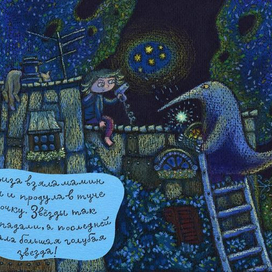 взяла мамин
и продула в туче
очку. Звёзды так
падали, а последней
большая голубая
звезда!